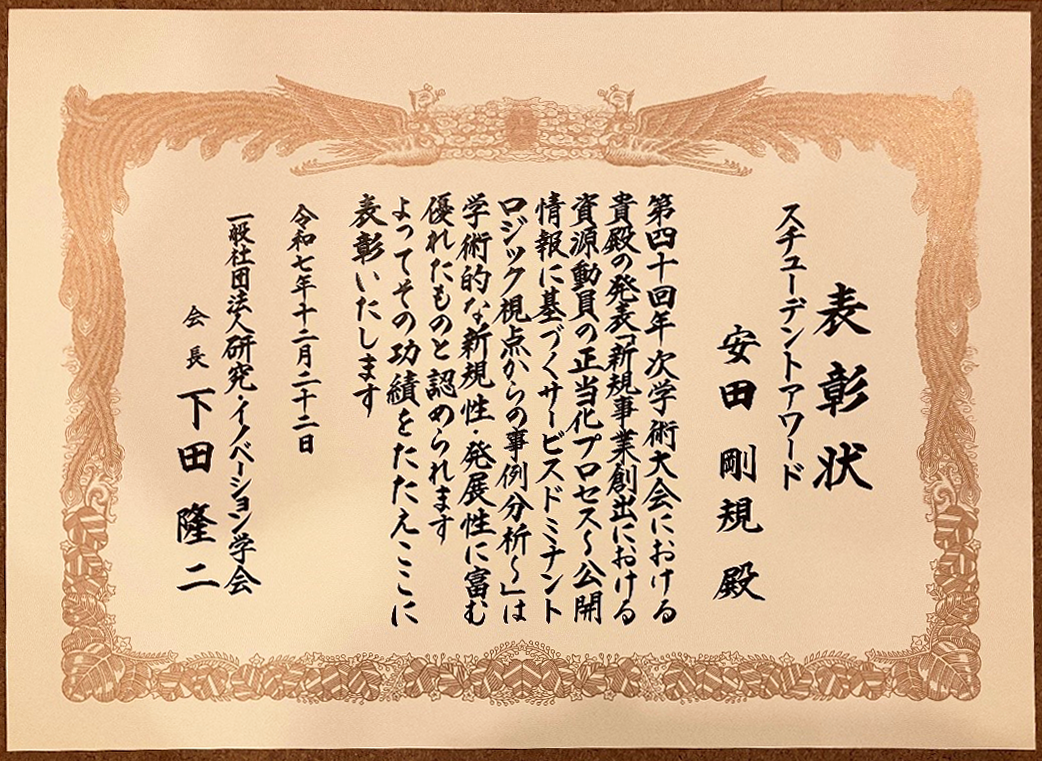 表彰状
スチューデントアワード
安田 剛規 殿
第四十回年次学術大会における
貴殿の発表「新規事業創出における
資源動員の正当化プロセス～公開
情報に基づくサービスドミナント
ロジック視点からの事例分析～」は
学術的な新規性・発展性に富む
優れたものと認められます
よってその功績をたたえここに
表彰いたします
令和七年十二月二十二日
一般社団法人研究・イノベーション学会
会長 下田 隆二